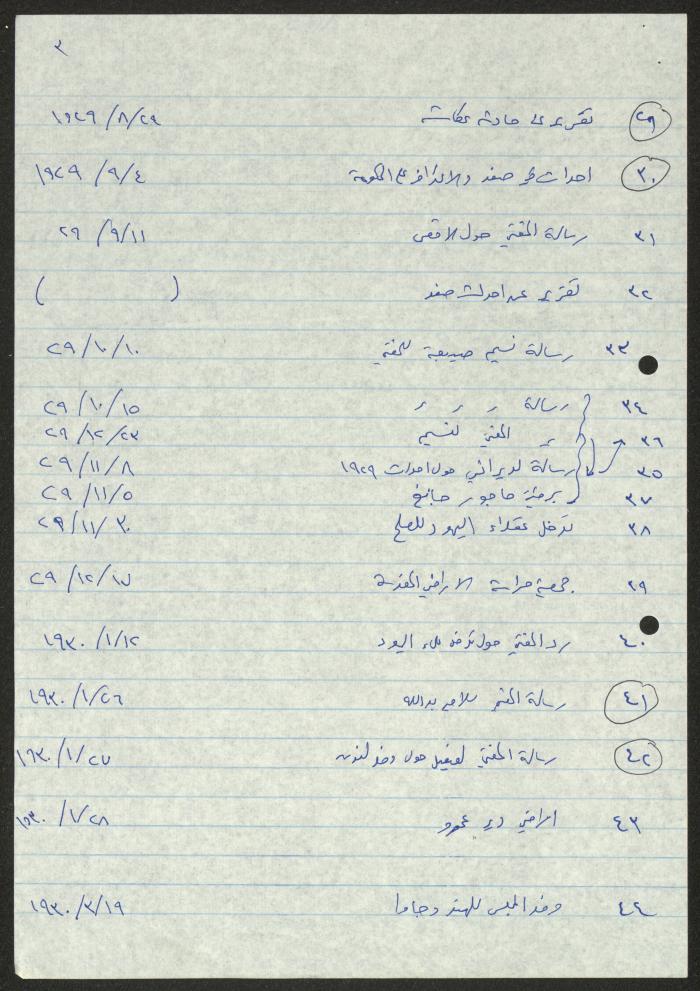 ٣
٢٩ تقرير عن حادثة عكا ١٩٢٩/٨/٢٩
٣٠ احداث صفد والاعتداء على الحكومة ١٩٢٩/٩/٤
٣١ رسالة المفتي حول الاقصى ٢٩/٩/١١
٣٢ تقرير عن احداث صفد ( )
٣٣ رسالة نسيم صيبعة للمفتي ٢٩/١٠/١٠
٣٤ رسالة ٢٩/١٠/١٥
٣٦ المفتي لنسيم ٢٩/١٢/٢٣
٣٥ رسالة لديراني حول احداث ١٩٢٩ ٢٩/١١/٨
٣٧ برقية ٢٩/١١/٥
٣٨ تدخل عقلاء اليهود للصلح ٢٩/١١/٣٠
٣٩ جمعية حراسة الاراضي المقدسة ٢٩/١٢/١٧
٤٠ رد المفتي حول اليهود ١٩٣٠/١/١٢
٤١ رسالة المفتي للامير عبدالله ١٩٣٠/١/٢٦
٤٢ رسالة المفتي لفيصل حول وفد لندن ١٩٣٠/١/٢٧
٤٣ اراضي دير عمرو ١٩٣٠/١/٢٨
٤٤ وفد المجلس للهند وجاوا ١٩٣٠/٣/١٩